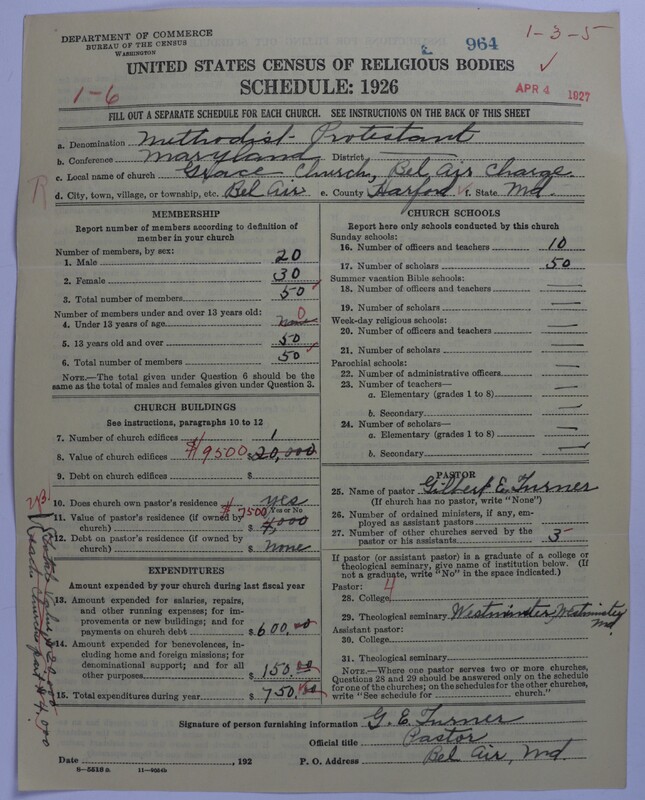 DEPARTMENT OF COMMERCE
BUREAU OF THE CENSUS
WASHINGTON
964
1-3-5
UNITED STATES CENSUS OF RELIGIOUS BODIES
SCHEDULE: 1926
1-6
APR 4 1927
FILL OUT A SEPARATE SCHEDULE FOR EACH CHURCH. SEE INSTRUCTIONS ON THE BACK OF THIS SHEET
a. Denomination Methodist Protestant
b. Conference Maryland District
c. Local name of church Grace Church, Bel Air Charge
d. City, town, village, or township, etc. Bel Air e. County Harford f. State Md.
MEMBERSHIP
Report number of members according to definition of
member in your church
Number of members, by sex:
1. Male 20
2. Female 30
3. Total number of members 50
Number of members under and over 13 years old:
4. Under 13 years of age none 0
5. 13 years old and over 50
6. Total number of members 50
NOTE.—The total given under Question 6 should be
the same as the total of males and females given under Question 3.
CHURCH BUILDINGS
See instructions, paragraphs 10 to 12
7. Number of church edifices 1
8. Value of church edifices $9500 $20,000
9. Debt on church edifices $
10. Does church own pastor's residence yes
Yes or No
11. Value of pastor's residence (if owned by
church) $7500 $4,000
12. Debt on pastor's residence (if owned by
church) $ none
EXPENDITURES
Amount expended by your church during last fiscal year
13. Amount expended for salaries, repairs,
and other running expenses; for im-
provements or new buildings; and for
payments on church debt $600.00
14. Amount expended for benevolences,
including home and foreign missions; for
denominational support; and for all
other purposes $150.00
15. Total expenditures during year $750.00
CHURCH SCHOOLS
Report here only schools conducted by this church
Sunday schools:
16. Number of officers and teachers 10
17. Number of scholars 50
Summer vacation Bible schools:
18. Number of officers and teachers —
19. Number of scholars —
Week-day religious schools:
20. Number of officers and teachers —
21. Number of scholars —
Parochial schools:
22. Number of administrative officers —
23. Number of teachers—
a. Elementary (grades 1 to 8) —
b. Secondary —
24. Number of scholars—
a. Elementary (grades 1 to 8) —
b. Secondary —
PASTOR
25. Name of pastor Gilbert E. Turner
(If church has no pastor, write "None")
26. Number of ordained ministers, if any, em-
ployed as assistant pastors
27. Number of other churches served by the
pastor or his assistants 3
If pastor (or assistant pastor) is a graduate of a college or
theological seminary, give name of institution below. (If
not a graduate, write "No" in the space indicated.)
Pastor: 4
28. College
29. Theological seminary Westminster, Westminster
Md.
Assistant pastor:
30. College
31. Theological seminary
NOTE.—Where one pastor serves two or more churches,
Questions 28 and 29 should be answered only on the schedule
for one of the churches; on the schedules for the other churches,
write "See schedule for church."
Signature of person furnishing information G. E. Turner
Official title Pastor
Date , 192 P. O. Address Bel Air, Md.